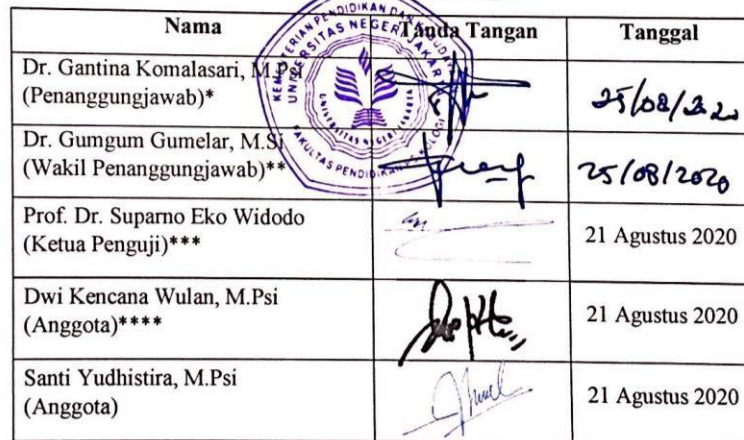 Nama Tanda Tangan Tanggal
Dr. Gantina Komalasari, M.Psi
(Penanggungjawab)* 25/08/2020
Dr. Gumgum Gumelar, M.Si
(Wakil Penanggungjawab)** 25/08/2020
Prof. Dr. Suparno Eko Widodo
(Ketua Penguji)*** 21 Agustus 2020
Dwi Kencana Wulan, M.Psi
(Anggota)**** 21 Agustus 2020
Santi Yudhistira, M.Psi
(Anggota) 21 Agustus 2020
UNIVERSITAS NEGERI JAKARTA
FAKULTAS PENDIDIKAN